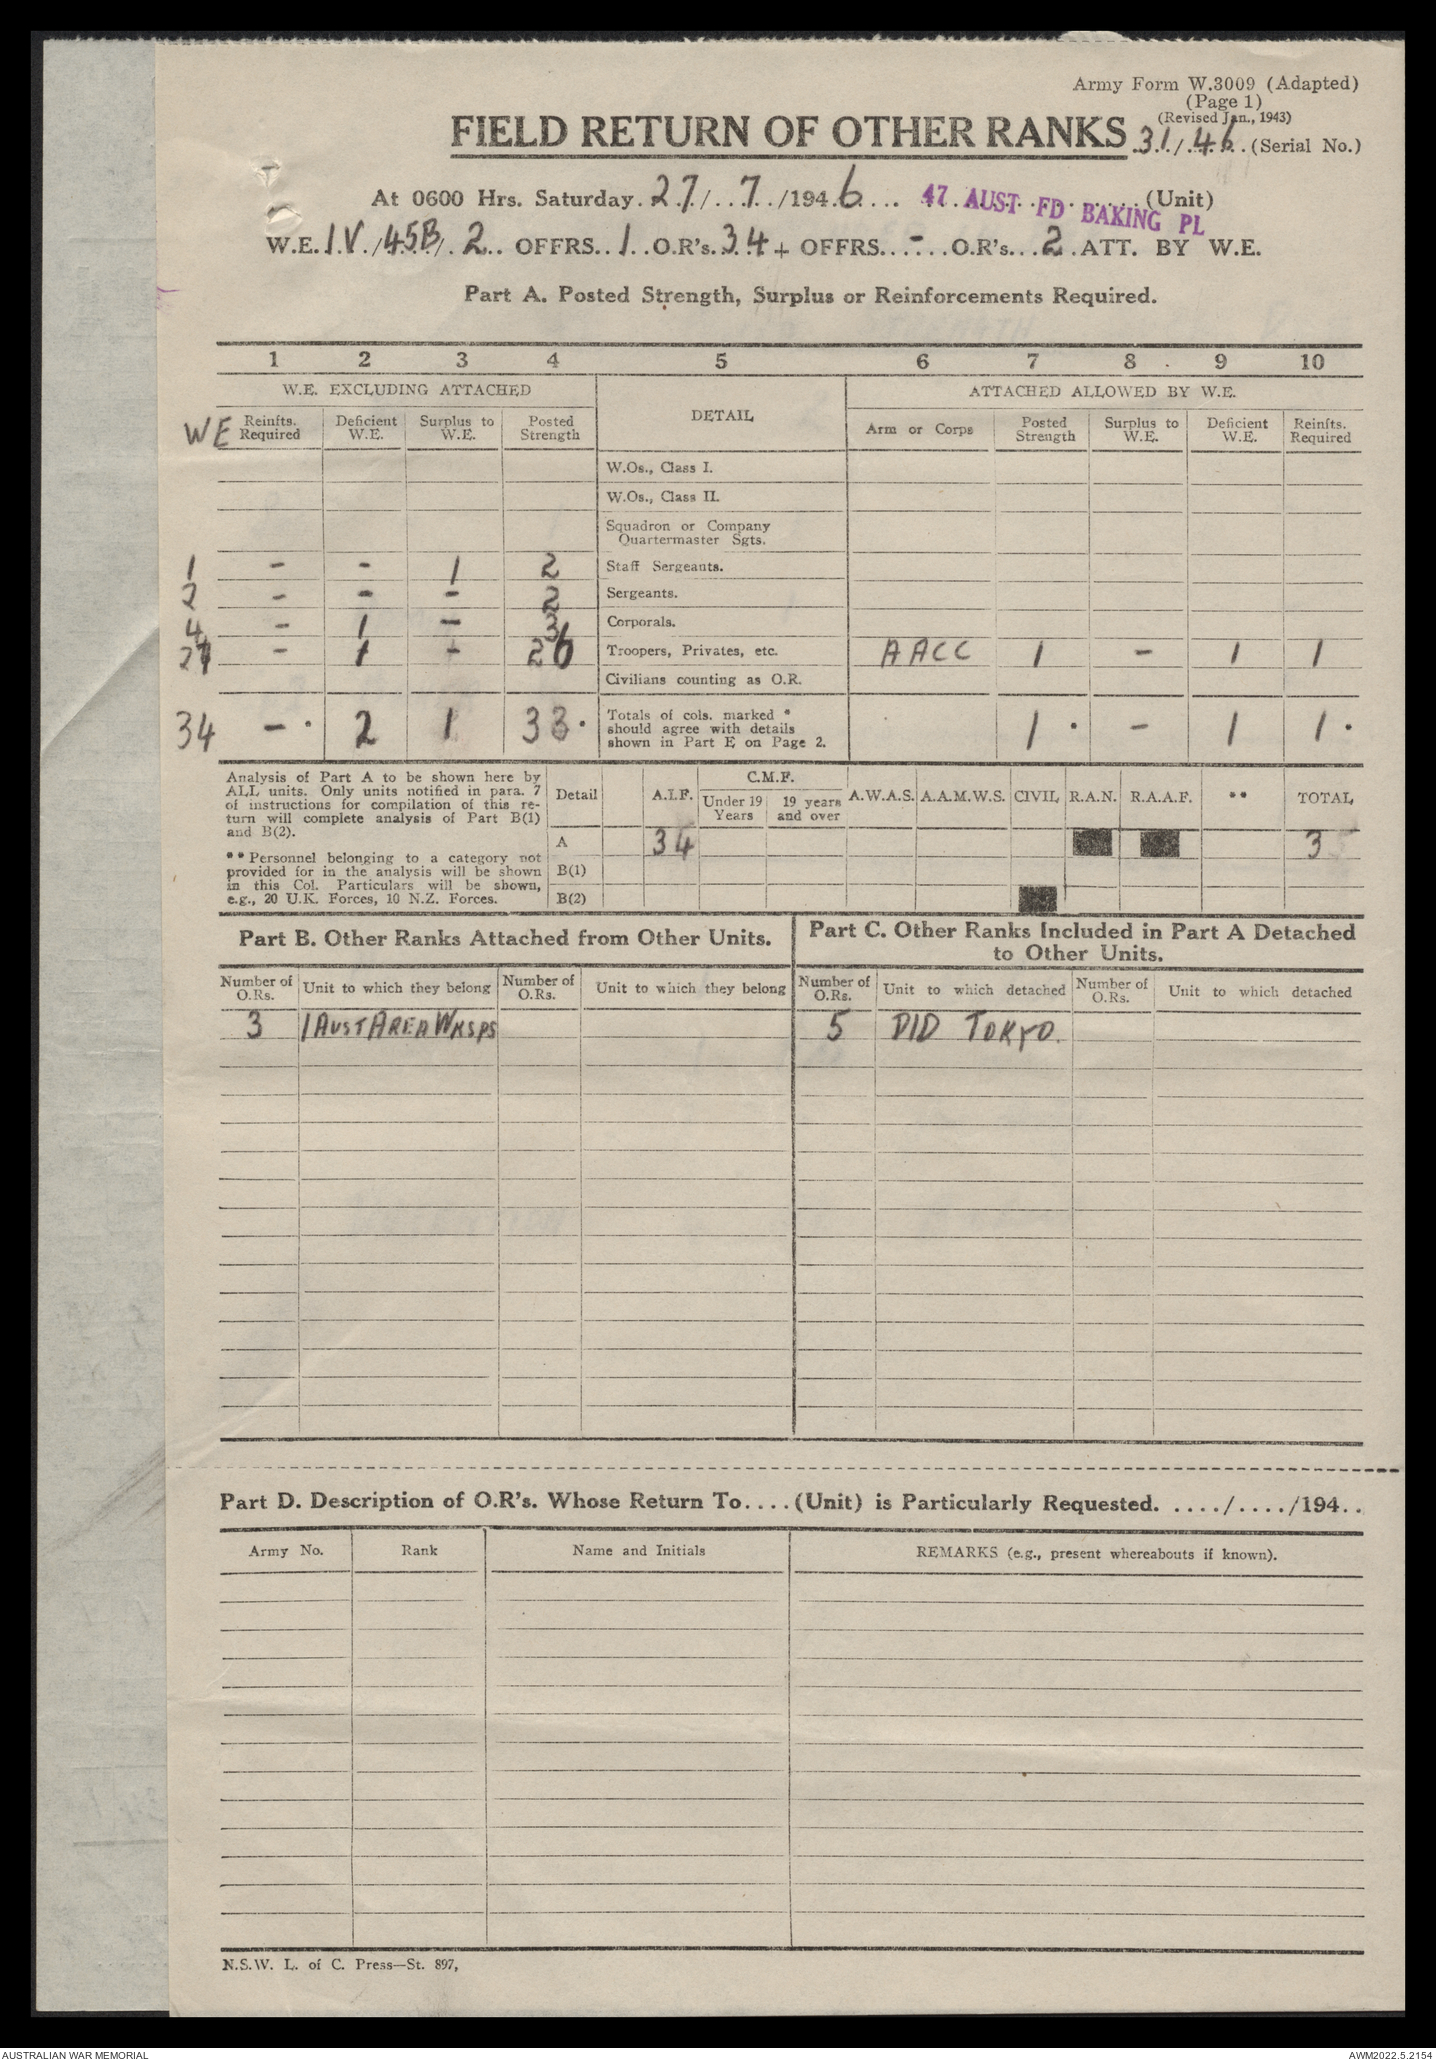 Army Form W.3009 (Adapted)
(Page 1)
(Revised Jan., 1943)
FIELD RETURN OF OTHER RANKS 31/46 (Serial No.)
At 0600 Hrs. Saturday 27/ 7 /1946 47 AUST FD BAKING PL (Unit)
W.E. IV /45B/ 2 OFFRS. 1 O.R's. 34 + OFFRS. - O.R's. 2 ATT. BY W.E.
Part A. Posted Strength, Surplus or Reinforcements Required.
1 2 3 4 5 6 7 8 9 10
W.E. EXCLUDING ATTACHED DETAIL ATTACHED ALLOWED BY W.E.
WE Reinfts. Required Deficient W.E. Surplus to W.E. Posted Strength Arm or Corps Posted Strength Surplus to W.E. Deficient W.E. Reinfts. Required
W.Os., Class I.
W.Os., Class II.
Squadron or Company
Quartermaster Sgts.
1 - - 1 2 Staff Sergeants.
2 - - - 2 Sergeants.
4 - 1 - 3 Corporals.
27 - 1 - 26 Troopers, Privates, etc. AACC 1 - 1 1
Civilians counting as O.R.
34 - * 2 1 33 * Totals of cols. marked *
should agree with details
shown in Part E on Page 2. 1 * - 1 1 *
Analysis of Part A to be shown here by
ALL units. Only units notified in para. 7
of instructions for compilation of this re-
turn will complete analysis of Part B(1)
and B(2).
** Personnel belonging to a category not
provided for in the analysis will be shown
in this Col. Particulars will be shown,
e.g., 20 U.K. Forces, 10 N.Z. Forces.
Detail A.I.F. C.M.F. A.W.A.S. A.A.M.W.S. CIVIL R.A.N. R.A.A.F. ** TOTAL
Under 19 Years 19 years and over
A 34 3
B(1)
B(2)
Part B. Other Ranks Attached from Other Units.
Part C. Other Ranks Included in Part A Detached
to Other Units.
Number of O.Rs. Unit to which they belong Number of O.Rs. Unit to which they belong Number of O.Rs. Unit to which detached Number of O.Rs. Unit to which detached
3 1 AUST AREA WKSPS 5 DID TOKYO.
Part D. Description of O.R's. Whose Return To.... (Unit) is Particularly Requested. ..../..../194..
Army No. Rank Name and Initials REMARKS (e.g., present whereabouts if known).
N.S.W. L. of C. Press—St. 897,
AUSTRALIAN WAR MEMORIAL AWM2022.5.2154